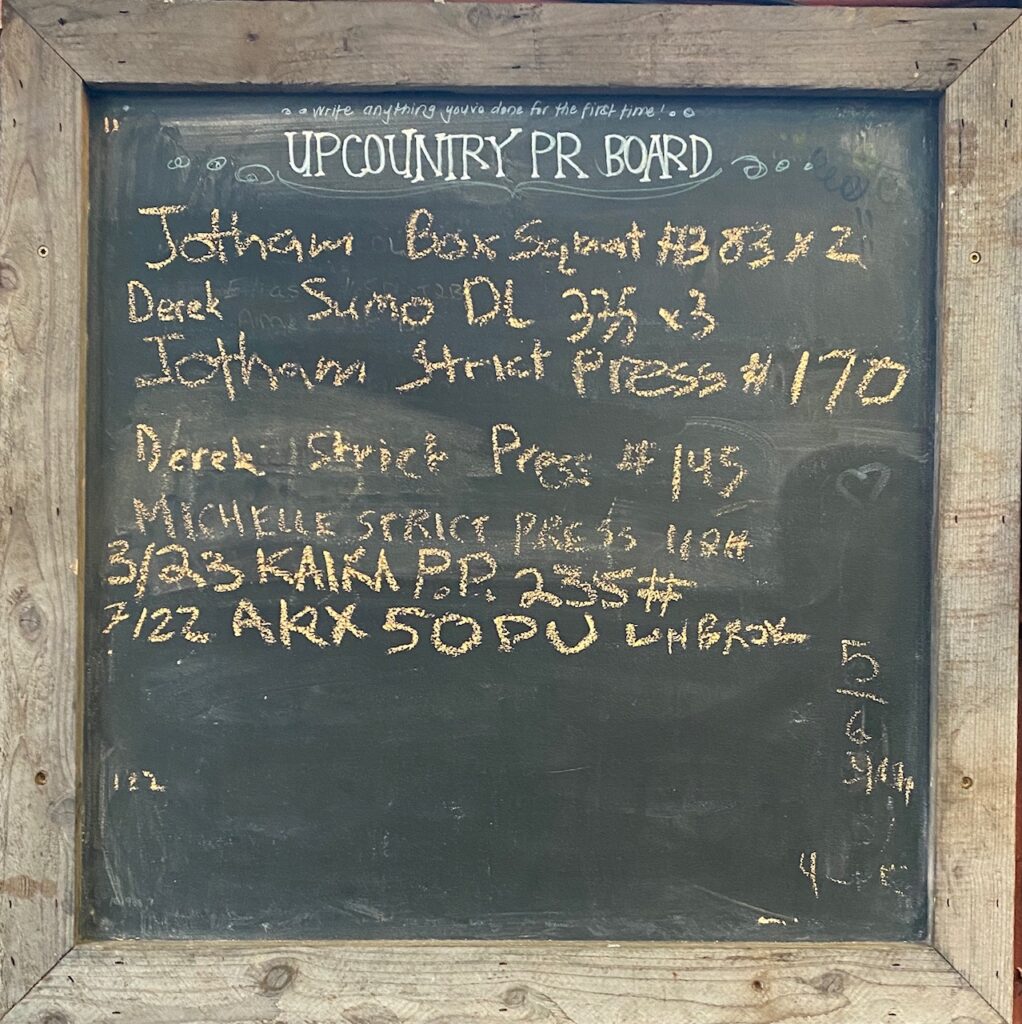 write anything you've done for the first time!
UPCOUNTRY PR BOARD
Jotham Box Squat #383 x 2
Derek Sumo DL 335 x3
Jotham Strict Press #170
Derek Strict Press #145
MICHELLE STRICT PRESS
3/23 KAIKA P.P. 235#
7/22 AKX 50 PU UNBROK
5
122